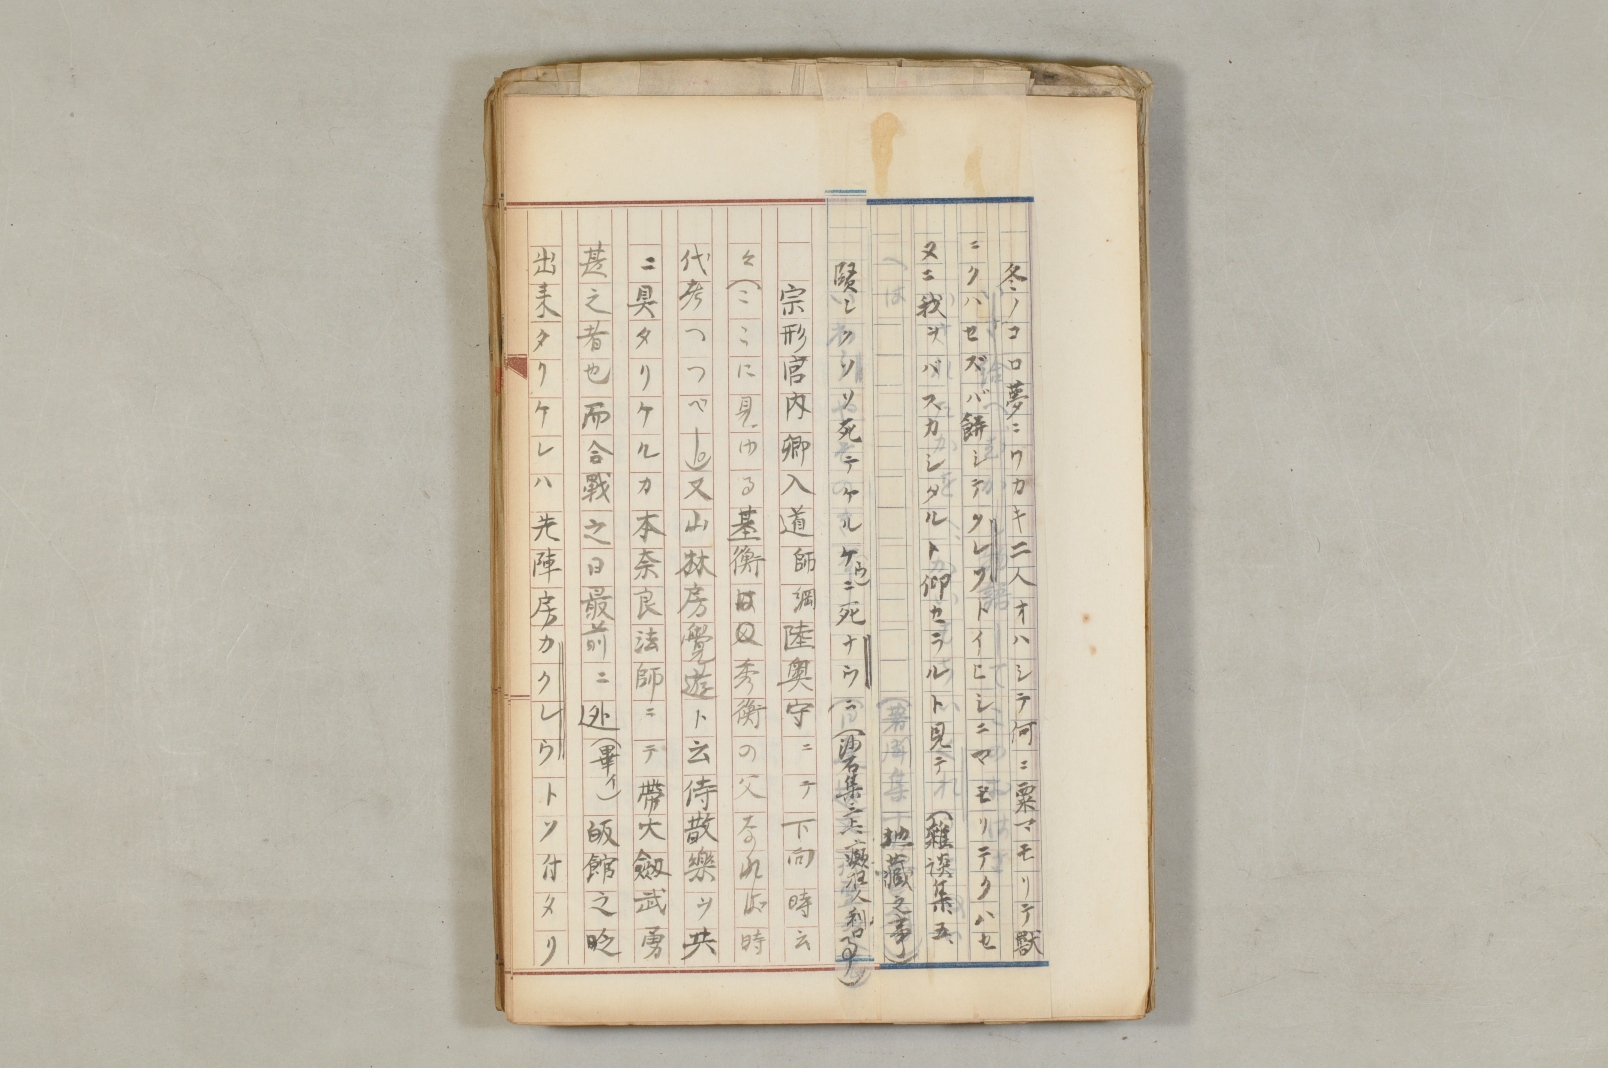 冬ノコロ夢ニワカキ二人オハシテ何ニ粟マモリテ獸
ニクハセズバ餅シテクレウドイヒシニマモリテクハセ
ヌニ我ヲバスカシタルトカ仰セラルト見テオ(雜談集五、
地藏之事)
賢シソソソ死テケルケ(ウ)ニ死ナウニ(沙石集三上、癲狂人利口事)
宗形宮内卿入道師綱陸奥守ニテ下向時云
々(ここに見ゆる基衡は秀衡の父なれば時
代考へつべし。)又山林房覺遊ト云侍散樂ヲ共
ニ具タリケルカ本奈良法師ニテ帶大劔武勇
甚之者也而合戰之日最前ニ迯(畢イ)皈館之晩
出来タリケレハ先陣房カクレウトソ付タリ